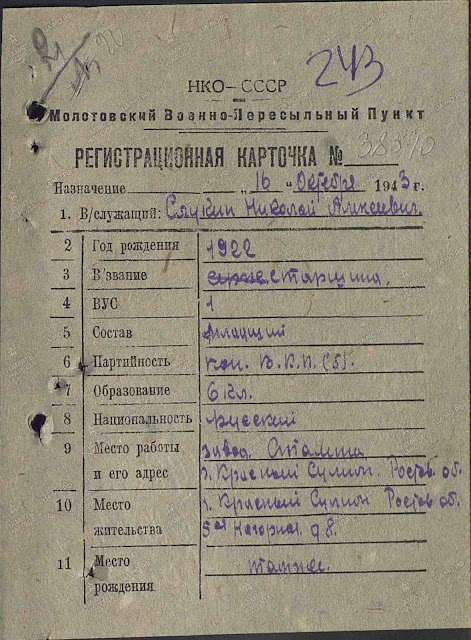 243
НКО–СССР
Молотовский Военно-Пересыльный Пункт
РЕГИСТРАЦИОННАЯ КАРТОЧКА № 38390
Назначение „ 16 “ Октября 1943 г.
1. В/служащий: Сяукин Николай Алексеевич.
2 Год рождения 1922
3 В/звание старшина.
4 ВУС 1
5 Состав младший
6 Партийность кан. В.К.П.(б).
7 Образование 6 кл.
8 Национальность русский
9 Место работы завод Сталина
и его адрес г. Красный Сулин. Ростов об.
10 Место г. Красный Сулин Ростов об.
жительства 5ая Нагорная д 8.
11 Место
рождения тамже.